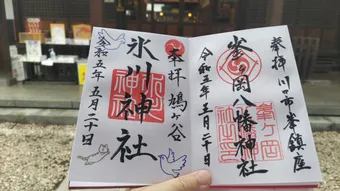 奉拝 川口市峯鎮座
峯ヶ岡八幡神社
峯ヶ岡
令和五年五月二十日
奉拝 鳩ヶ谷
氷川神社
令和五年五月二十日